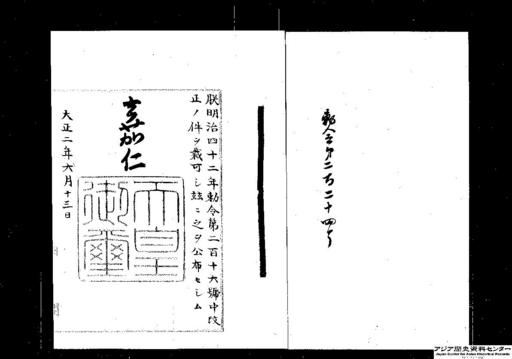 勅令第二百二十四号
朕明治四十二年勅令第二百十六號中改
正ノ件ヲ裁可シ茲ニ之ヲ公布セシム
嘉仁
天皇
御璽
大正二年六月十三日
アジア歴史資料センター
Japan Center for Asian Historical Records